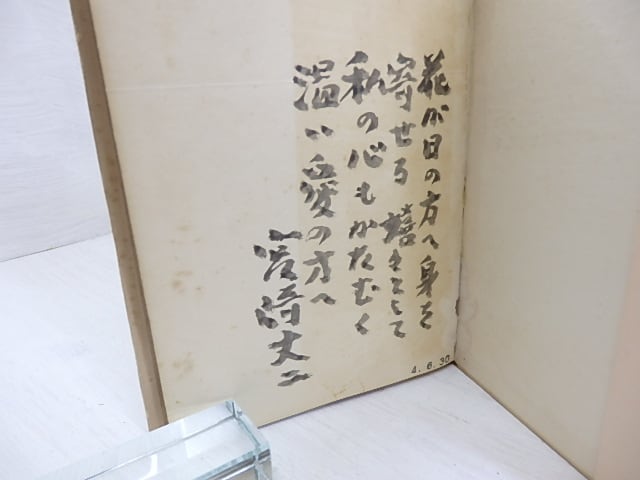 花が日の方へ身を
寄せる 嬉々として
私の心もかたむく
温い愛の方へ
宮崎丈二
4. 6. 30